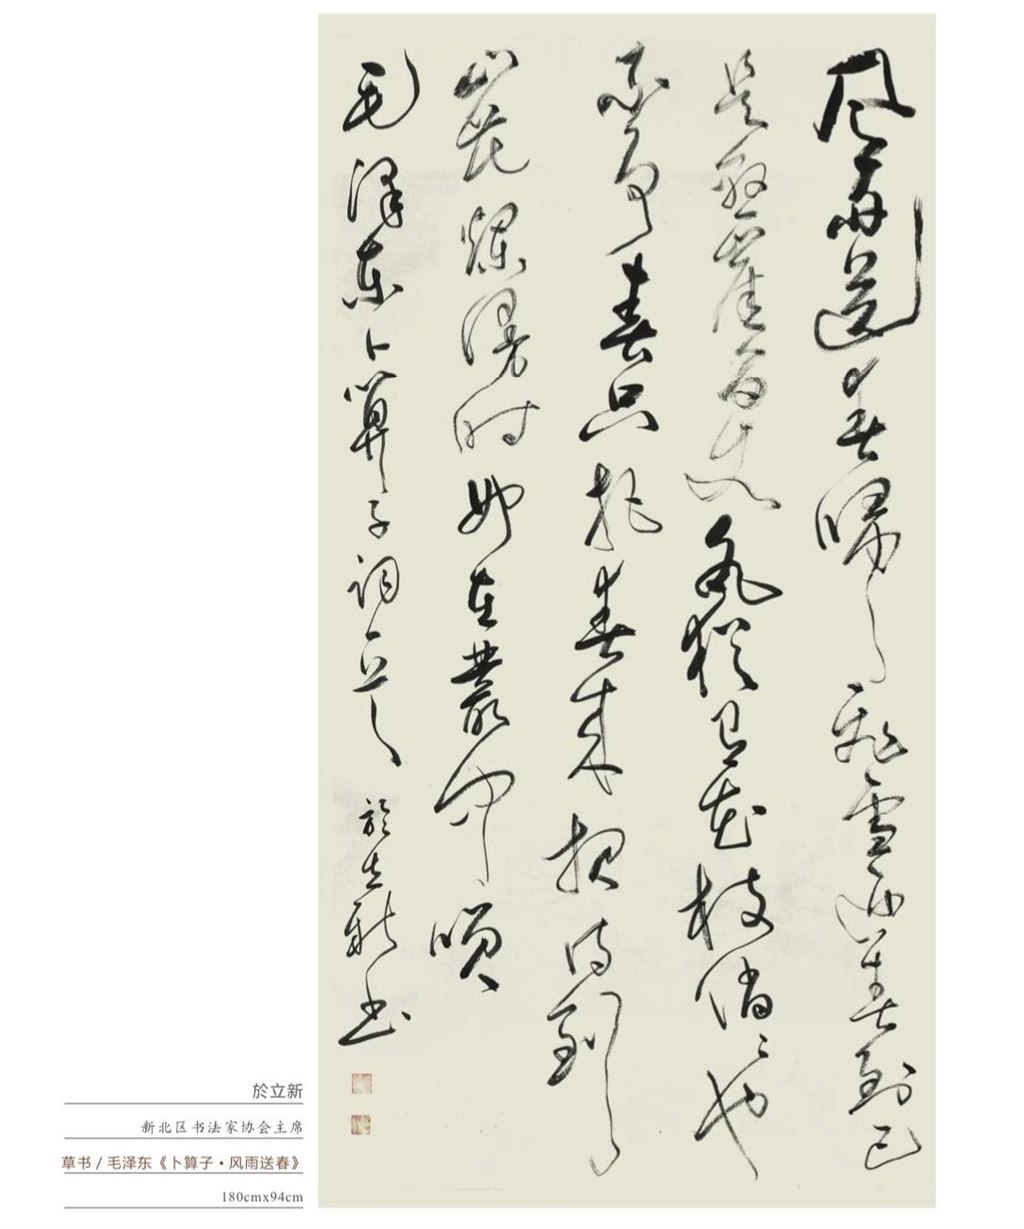 風雨送春歸飛雪迎春到已
是懸崖百丈冰猶有花枝俏々也
不爭春只把春來報待到
山花爛漫時她在叢中咲
毛澤東卜算子詞一首 於立新書
於立新
新北区书法家协会主席
草书 / 毛泽东《卜算子·风雨送春》
180cmx94cm